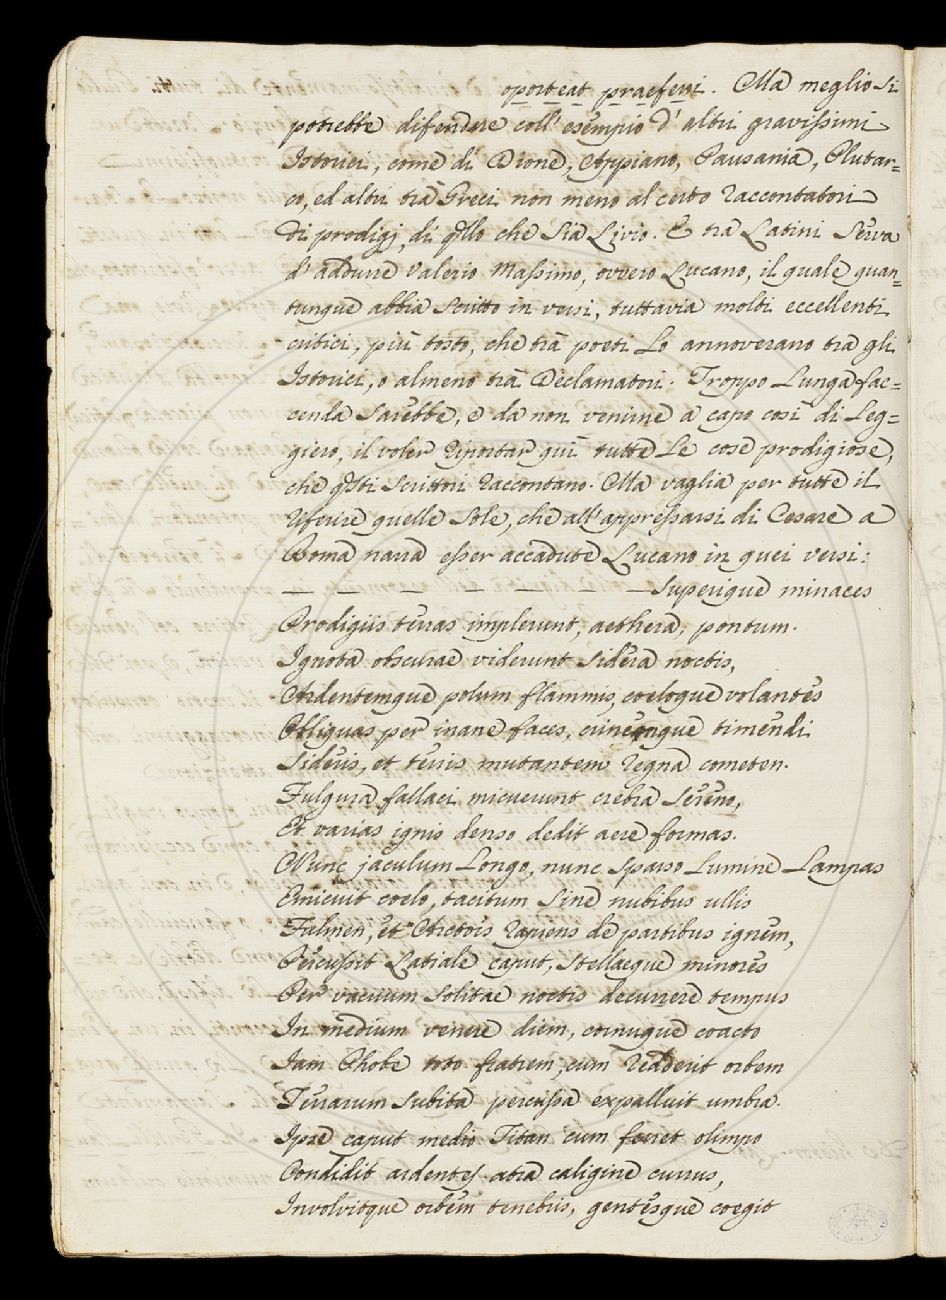 oporteat praeferri. Ma meglio si
potrebbe difendere coll'esempio d'altri gravissimi
Istorici, come di Dione, Appiano, Pausania, Plutar=
co, ed altri trà Greci non meno al certo raccontatori
di prodigj, di qllo che sia Livio. E trà Latini serva
d'addurre Valerio Massimo, ovvero Lucano, il quale quan=
tunque abbia scritto in versi, tuttavia molti eccellenti
critici, più tosto, che trà poeti lo annoverano trà gli
Istorici, o almeno trà Declamatori. Troppo lunga fac=
cenda sarebbe, e da non venirne a capo così di leg=
giero, il voler riportar quì tutte le cose prodigiose,
che qsti scrittori raccontano. Ma vaglia per tutte il
riferire quelle sole, che all'appressarsi di Cesare a
Roma narra esser accadute Lucano in quei versi:
— — — — — — — Superique minaces
Prodigiis terras implerunt, aethera, pontum.
Ignota obscurae viderunt sidera noctis,
Ardentemque polum flammis, coeloque volantes
Obliquas per inane faces, crinemque timendi
Sideris, et terris mutantem regna cometen.
Fulgura fallaci micuerunt crebra sereno,
Et varias ignis denso dedit aere formas.
Nunc jaculum longo, nunc sparso lumine lampas
Emicuit coelo, tacitum sine nubibus ullis
Fulmen, et Arctois rapiens de partibus ignem,
Percussit Latiale caput, stellaeque minores
Per vacuum solitae noctis decurrere tempus
In medium venere diem, cornuque coacto
Iam Phobe toto fratrem, cum redderet orbem
Terrarum subita percussa expalluit umbra.
Ipse caput medio Titan cum ferret olimpo
Condidit ardentes atra caligine currus,
Involvitque orbem tenebris, gentesque coegit